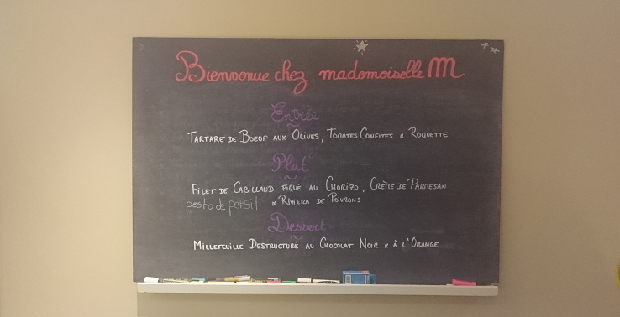 Bienvenue chez mademoiselle M
Entrée
TARTARE DE BOEUF AUX OLIVES, TOMATES CONFITES & ROQUETTE
Plat
FILET DE CABILLAUD AU CHORIZO, DE PARMESAN
pesto de persil & DE POIVRONS
Dessert
MILLEFEUILLE DESTRUCTURÉ AU CHOCOLAT NOIR & À L'ORANGE